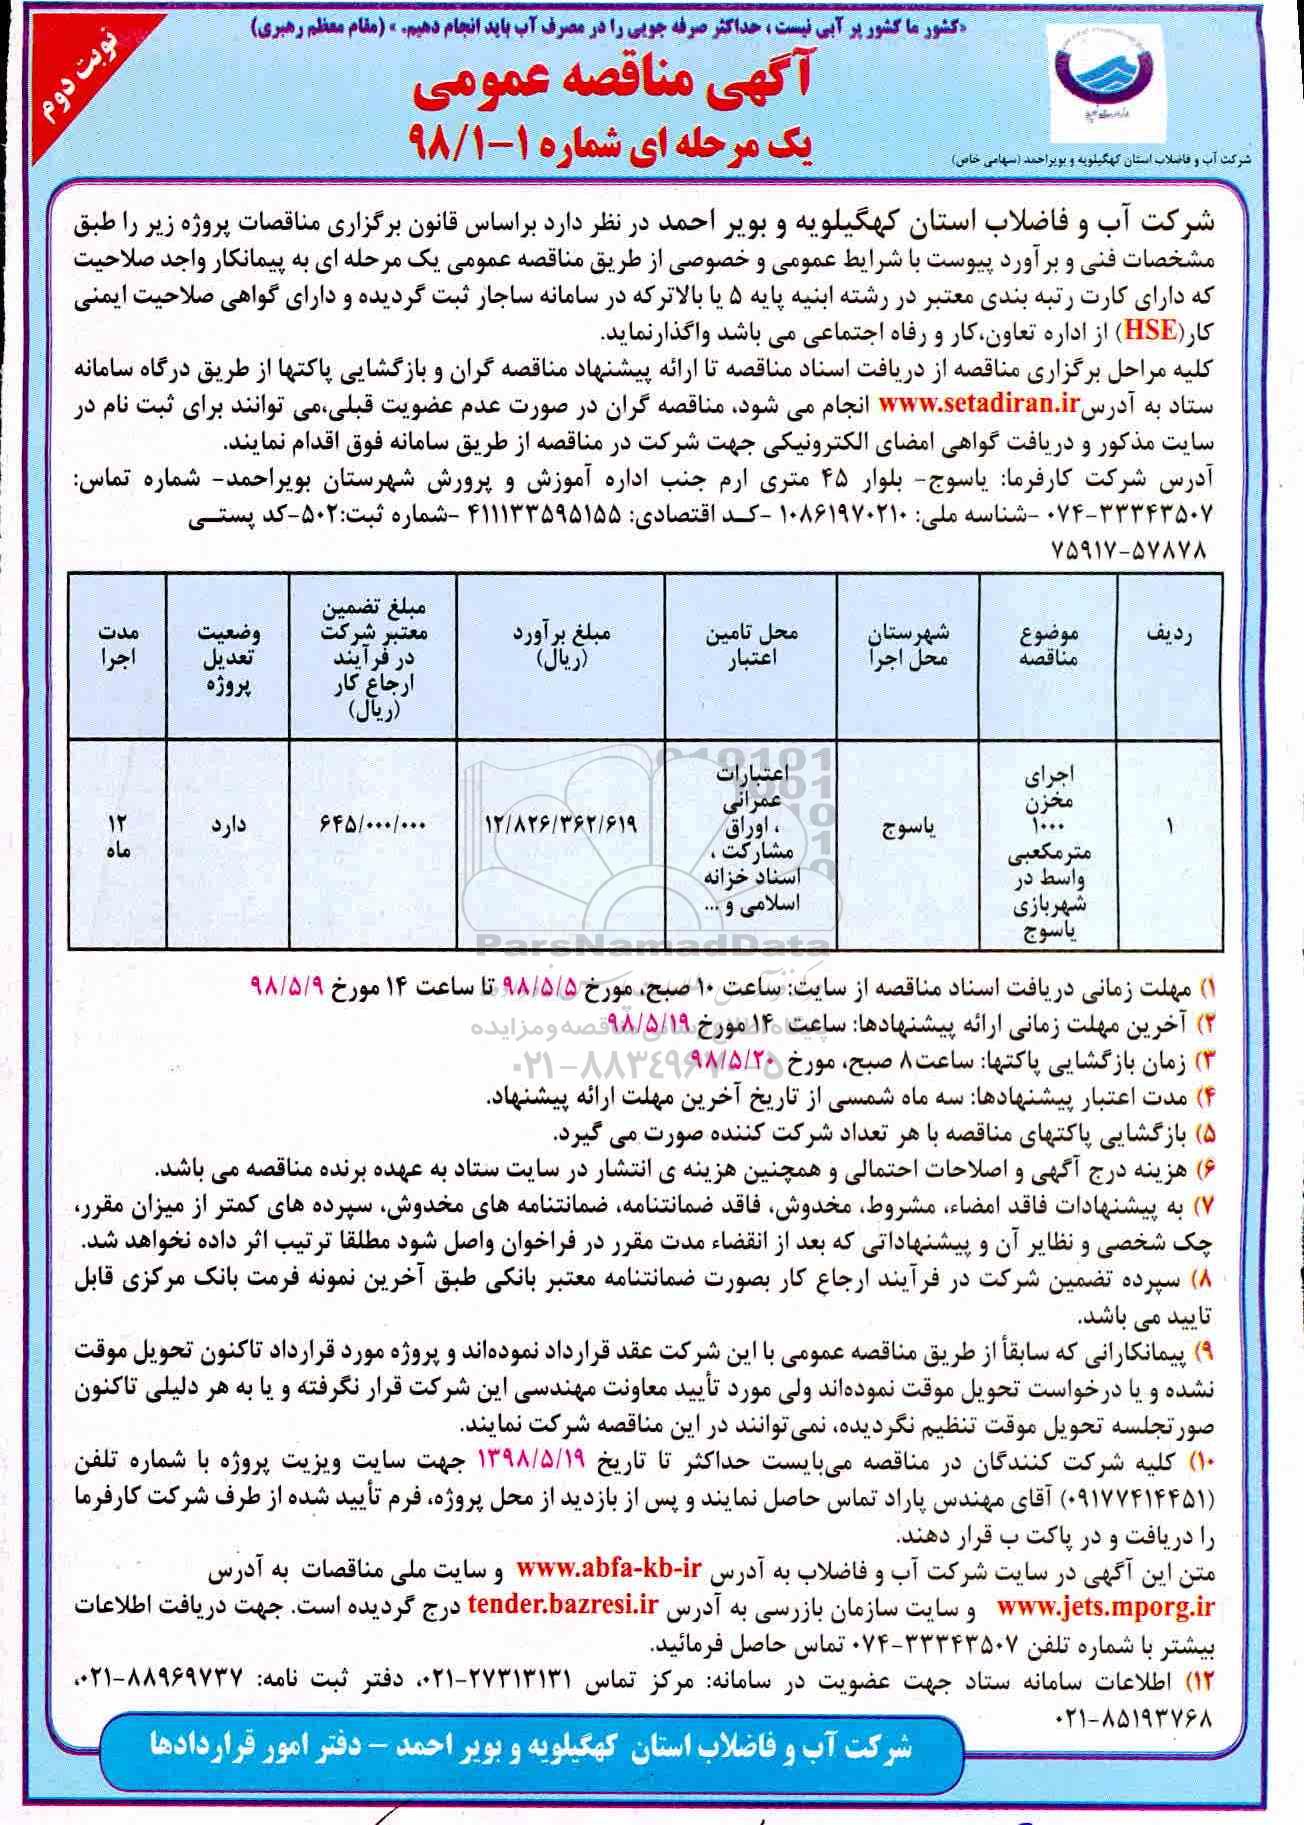 «کشور ما کشور پر آبی نیست ، حداکثر صرفه جویی را در مصرف آب باید انجام دهیم. » (مقام معظم رهبری)
نوبت دوم
آگهی مناقصه عمومی
یک مرحله ای شماره ۱-۹۸/۱
شرکت آب و فاضلاب استان کهگیلویه و بویراحمد (سهامی خاص)
شرکت آب و فاضلاب استان کهگیلویه و بویر احمد در نظر دارد براساس قانون برگزاری مناقصات پروژه زیر را طبق
مشخصات فنی و برآورد پیوست با شرایط عمومی و خصوصی از طریق مناقصه عمومی یک مرحله ای به پیمانکار واجد صلاحیت
که دارای کارت رتبه بندی معتبر در رشته ابنیه پایه ۵ یا بالاترکه در سامانه ساجار ثبت گردیده و دارای گواهی صلاحیت ایمنی
کار(HSE) از اداره تعاون،کار و رفاه اجتماعی می باشد واگذارنماید.
کلیه مراحل برگزاری مناقصه از دریافت اسناد مناقصه تا ارائه پیشنهاد مناقصه گران و بازگشایی پاکتها از طریق درگاه سامانه
ستاد به آدرسwww.setadiran.ir انجام می شود، مناقصه گران در صورت عدم عضویت قبلی،می توانند برای ثبت نام در
سایت مذکور و دریافت گواهی امضای الکترونیکی جهت شرکت در مناقصه از طریق سامانه فوق اقدام نمایند.
آدرس شرکت کارفرما: یاسوج- بلوار ۴۵ متری ارم جنب اداره آموزش و پرورش شهرستان بویراحمد- شماره تماس:
۰۷۴-۳۳۳۴۳۵۰۷ -شناسه ملی: ۱۰۸۶۱۹۷۰۲۱۰ -کـد اقتصادی: ۴۱۱۱۳۳۵۹۵۱۵۵ -شماره ثبت:۵۰۲-کد پستــی
۷۵۹۱۷-۵۷۸۷۸
ردیف
موضوع
مناقصه
شهرستان
محل اجرا
محل تامین
اعتبار
مبلغ برآورد
(ریال)
مبلغ تضمین
معتبر شرکت
در فرآیند
ارجاع کار
(ریال)
وضعیت
تعدیل
پروژه
مدت
اجرا
۱
اجرای
مخزن
۱۰۰۰
مترمکعبی
واسط در
شهربازی
یاسوج
یاسوج
اعتبارات
عمرانی
، اوراق
مشارکت ،
اسناد خزانه
اسلامی و ...
۱۲/۸۲۶/۳۶۲/۶۱۹
۶۴۵/۰۰۰/۰۰۰
دارد
۱۲
ماه
ParsNamadData
۱) مهلت زمانی دریافت اسناد مناقصه از سایت: ساعت ۱۰ صبح، مورخ ۹۸/۵/۵ تا ساعت ۱۴ مورخ ۹۸/۵/۹
۲) آخرین مهلت زمانی ارائه پیشنهادها: ساعت ۱۴ مورخ ۹۸/۵/۱۹
۳) زمان بازگشایی پاکتها: ساعت۸ صبح، مورخ ۹۸/۵/۲۰
۴) مدت اعتبار پیشنهادها: سه ماه شمسی از تاریخ آخرین مهلت ارائه پیشنهاد.
۵) بازگشایی پاکتهای مناقصه با هر تعداد شرکت کننده صورت می گیرد.
۶) هزینه درج آگهی و اصلاحات احتمالی و همچنین هزینه ی انتشار در سایت ستاد به عهده برنده مناقصه می باشد.
۷) به پیشنهادات فاقد امضاء، مشروط، مخدوش، فاقد ضمانتنامه، ضمانتنامه های مخدوش، سپرده های کمتر از میزان مقرر،
چک شخصی و نظایر آن و پیشنهاداتی که بعد از انقضاء مدت مقرر در فراخوان واصل شود مطلقا ترتیب اثر داده نخواهد شد.
۸) سپرده تضمین شرکت در فرآیند ارجاع کار بصورت ضمانتنامه معتبر بانکی طبق آخرین نمونه فرمت بانک مرکزی قابل
تایید می باشد.
۹) پیمانکارانی که سابقاً از طریق مناقصه عمومی با این شرکت عقد قرارداد نموده‌اند و پروژه مورد قرارداد تاکنون تحویل موقت
نشده و یا درخواست تحویل موقت نموده‌اند ولی مورد تأیید معاونت مهندسی این شرکت قرار نگرفته و یا به هر دلیلی تاکنون
صورتجلسه تحویل موقت تنظیم نگردیده، نمی‌توانند در این مناقصه شرکت نمایند.
۱۰) کلیه شرکت کنندگان در مناقصه می‌بایست حداکثر تا تاریخ ۱۳۹۸/۵/۱۹ جهت سایت ویزیت پروژه با شماره تلفن
(۰۹۱۷۷۴۱۴۴۵۱) آقای مهندس پاراد تماس حاصل نمایند و پس از بازدید از محل پروژه، فرم تأیید شده از طرف شرکت کارفرما
را دریافت و در پاکت ب قرار دهند.
متن این آگهی در سایت شرکت آب و فاضلاب به آدرس www.abfa-kb-ir و سایت ملی مناقصات به آدرس
www.jets.mporg.ir و سایت سازمان بازرسی به آدرس tender.bazresi.ir درج گردیده است. جهت دریافت اطلاعات
بیشتر با شماره تلفن ۰۷۴-۳۳۳۴۳۵۰۷ تماس حاصل فرمائید.
۱۲) اطلاعات سامانه ستاد جهت عضویت در سامانه: مرکز تماس ۰۲۱-۲۷۳۱۳۱۳۱، دفتر ثبت نامه: ۰۲۱-۸۸۹۶۹۷۳۷،
۰۲۱-۸۵۱۹۳۷۶۸
شرکت آب و فاضلاب استان کهگیلویه و بویر احمد - دفتر امور قراردادها